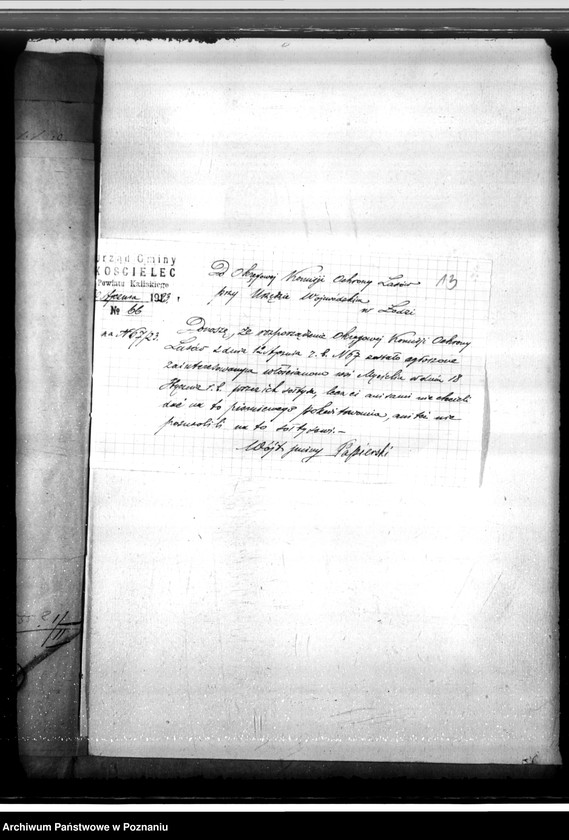 Urząd Gminy
KOŚCIELEC
Powiatu Kaliskiego
stycznia 1923 r
№ 66
na № 67/23.
Do Okręgowej Komisji Ochrony Lasów
przy Urzędzie Wojewódzkim
w Łodzi
13
Donoszę, że rozporządzenie Okręgowej Komisji Ochrony
Lasów z dnia stycznia r. b. № 67 zostało ogłoszone
zainteresowanym włościanom wsi w dniu 18
stycznia r. b. przez ich sołtysa, lecz ci ani sami nie chcieli
dać na to piśmiennego pokwitowania, ani też nie
pozwolili na to sołtysowi.—
Wójt gminy Papierski
Archiwum Państwowe w Poznaniu